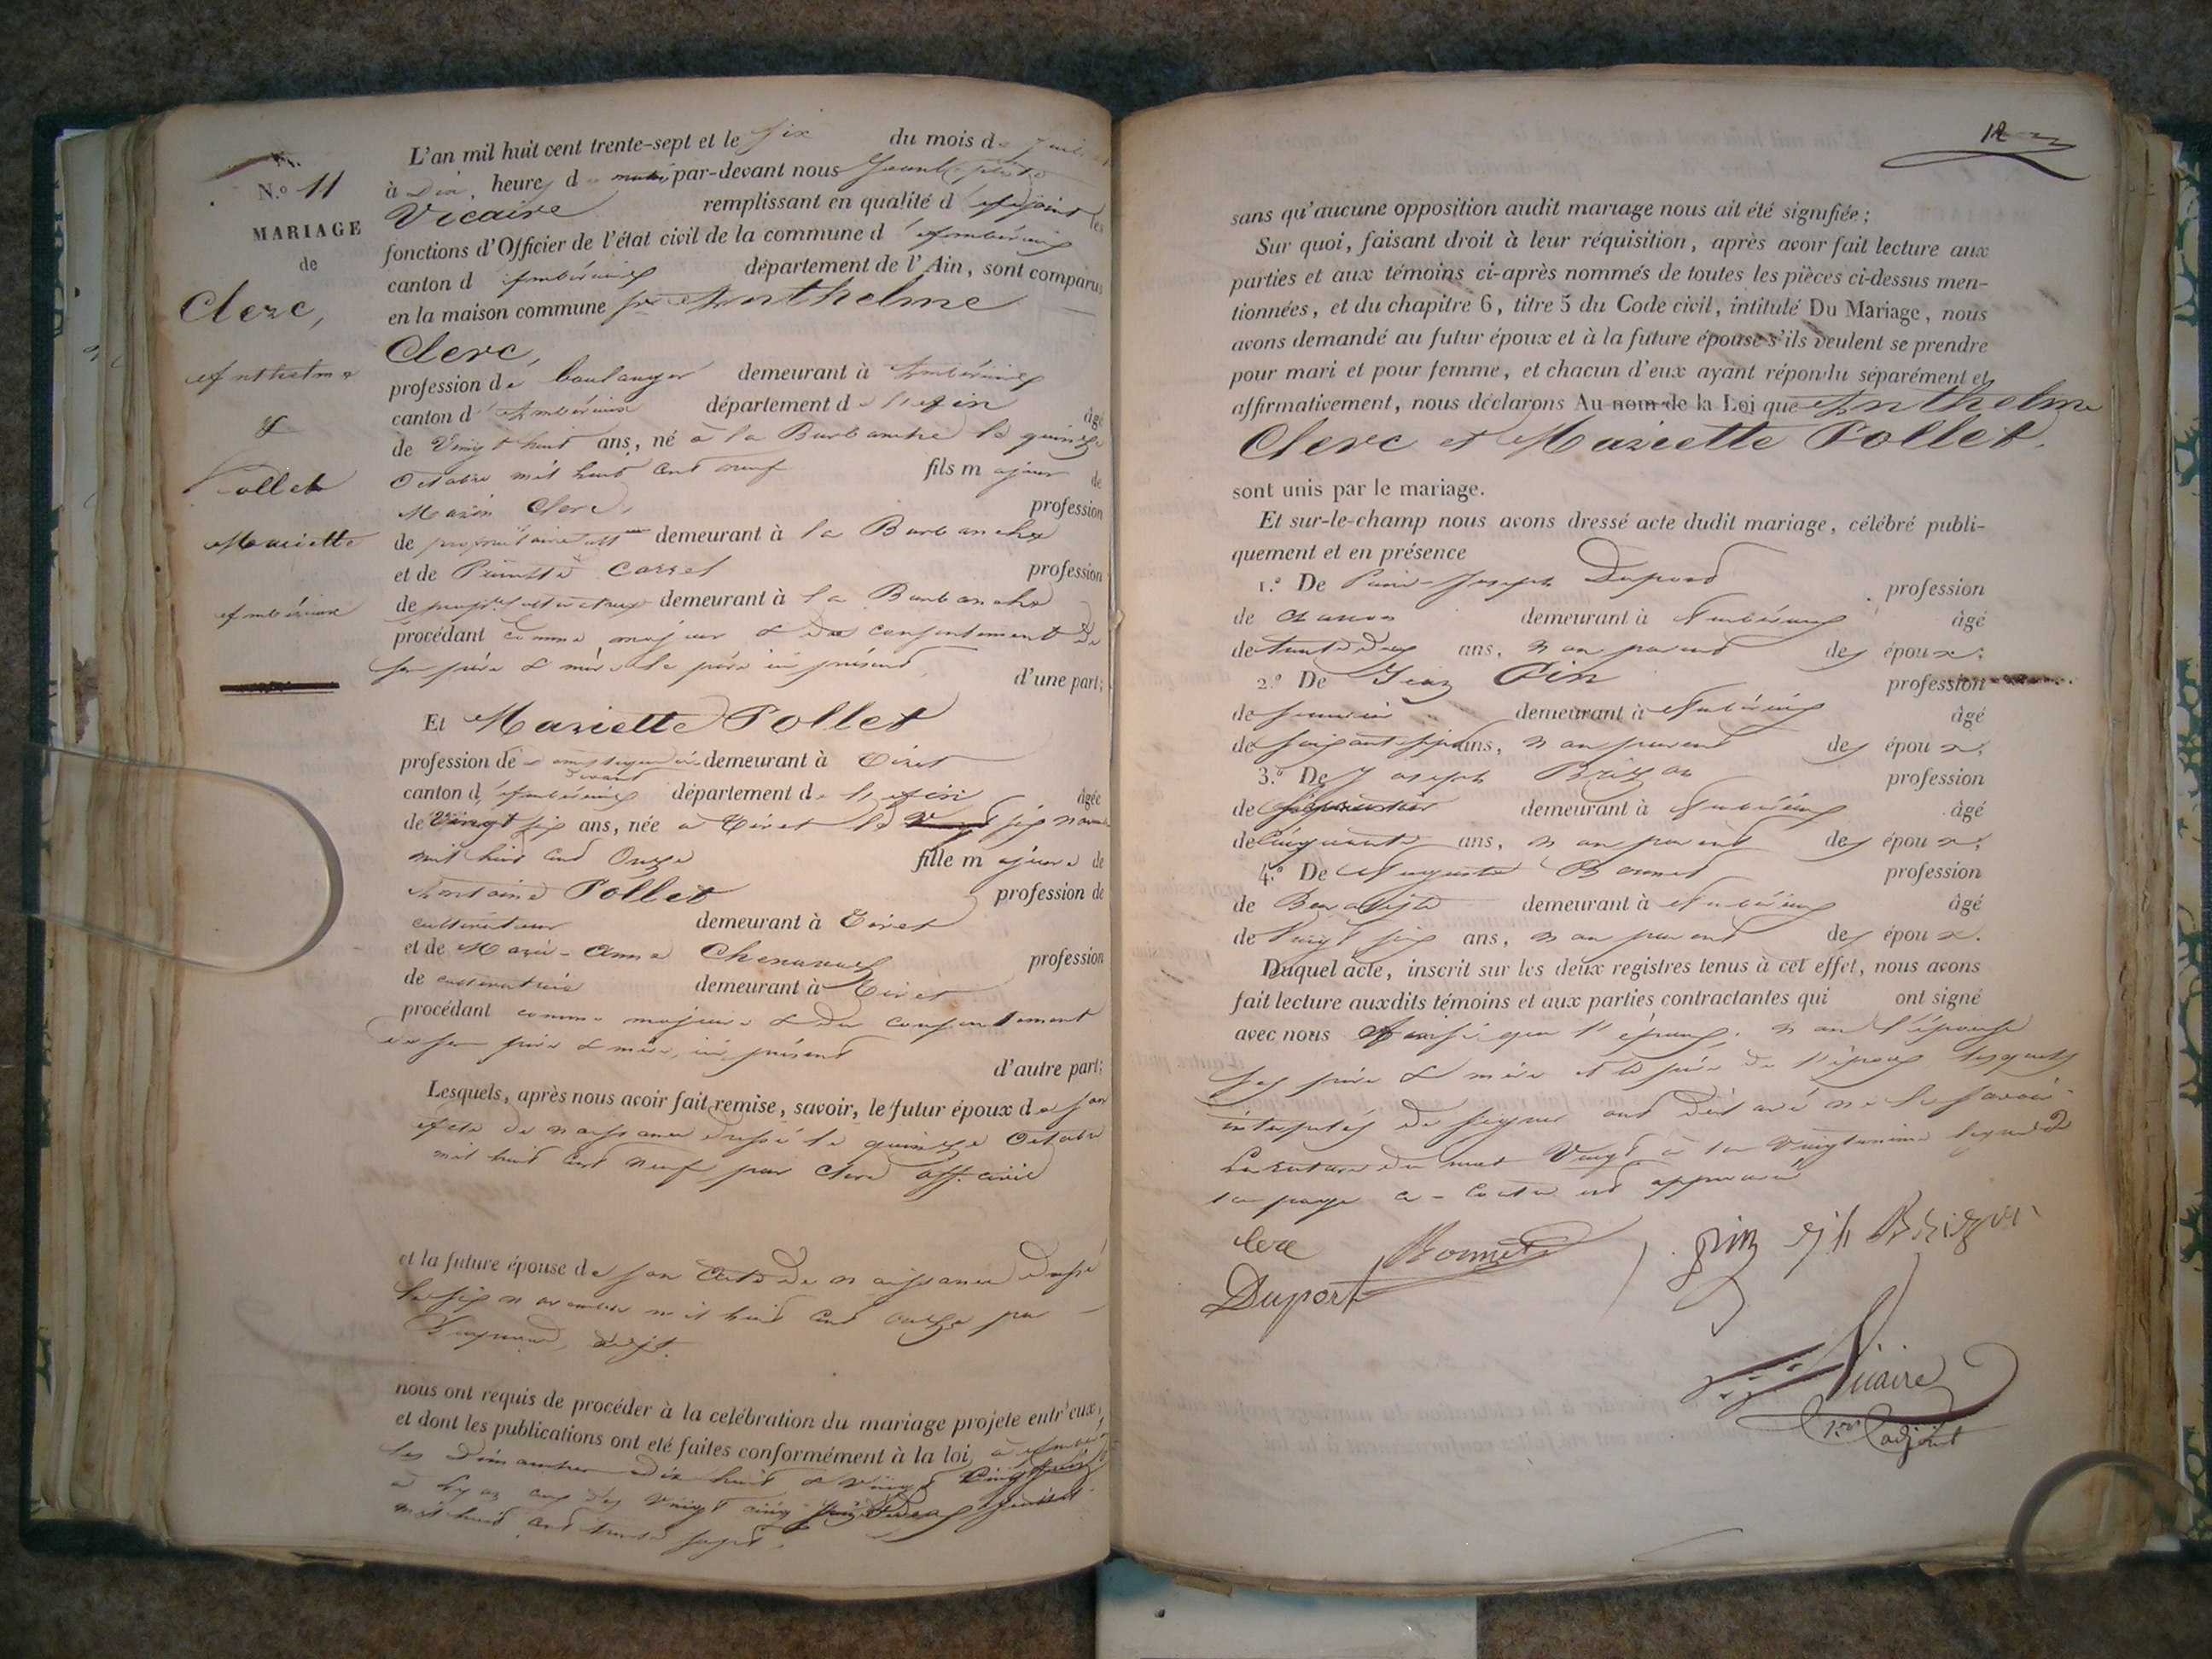 N.o 11
MARIAGE
de
Clerc,
Anthelme
&
Pollet
Mariette
Ambérieux
L'an mil huit cent trente-sept et le six du mois de Juillet
à Dix heures d par-devant nous
Vicaire remplissant en qualité d'adjoint les
fonctions d'Officier de l'état civil de la commune d'Ambérieux
canton d'Ambérieux département de l'Ain, sont comparus
en la maison commune Anthelme
Clerc,
profession de boulanger demeurant à Ambérieux
canton d'Ambérieux département de l'Ain âgé
de Vingt huit ans, né à la Burbanche le quinze
Octobre mil huit cent neuf fils majeur de
Marin Clerc, profession
de propriétaire demeurant à la Burbanche
et de Carrel profession
de demeurant à la Burbanche
procédant comme majeur & du consentement de
ses père & mère le père ici présent d'une part;
Et Mariette Pollet
profession de demeurant à Tiret
canton d'Ambérieux département de l'Ain âgée
de Vingt six ans, née à Tiret le six novembre
mil huit cent Onze fille majeure de
Antoine Pollet profession de
cultivateur demeurant à Tiret
et de Marie-Anne Chenavaz profession
de cultivatrice demeurant à Tiret
procédant comme majeure & du consentement
de ses père & mère, ici présent d'autre part;
Lesquels, après nous avoir fait remise, savoir, le futur époux de son
acte de naissance dressé le quinze Octobre
mil huit cent neuf par Clerc off. civil
et la future épouse de son acte de naissance dressé
le six novembre mil huit cent onze par
nous ont requis de procéder à la celébration du mariage projeté entr'eux,
et dont les publications ont été faites conformément à la loi, à
les Dimanches dix huit & vingt cinq juin
à des vingt cinq juin & deux juillet
mil huit cent trente sept.
12
sans qu'aucune opposition audit mariage nous ait été signifiée;
Sur quoi, faisant droit à leur réquisition, après avoir fait lecture aux
parties et aux témoins ci-après nommés de toutes les pièces ci-dessus men-
tionnées, et du chapitre 6, titre 5 du Code civil, intitulé Du Mariage, nous
avons demandé au futur époux et à la future épouse s'ils veulent se prendre
pour mari et pour femme, et chacun d'eux ayant répondu séparément et
affirmativement, nous déclarons Au nom de la Loi que Anthelme
Clerc et Mariette Pollet.
sont unis par le mariage.
Et sur-le-champ nous avons dressé acte dudit mariage, célébré publi-
quement et en présence
1.o De Joseph Duport profession
de demeurant à Ambérieux âgé
de trente deux ans, non parent des époux;
2.o De Jean Pin profession
de demeurant à Ambérieux âgé
de ans, non parent des époux;
3.o De Joseph Brizon profession
de demeurant à Ambérieux âgé
de Cinquante ans, non parent des époux;
4.o De Auguste Bonnet profession
de demeurant à Ambérieux âgé
de Vingt six ans, non parent des époux.
Duquel acte, inscrit sur les deux registres tenus à cet effet, nous avons
fait lecture auxdits témoins et aux parties contractantes qui ont signé
avec nous Ainsi que l'époux, non l'épouse
ses père & mère et le père de l'époux lesquels
interpelés de signer ont déclaré ne le savoir
du mot Vingt à la vingtunième ligne de
la page ci-contre est approuvé
Clerc Bonnet pin Brizon
Duport
Vicaire
adjoint